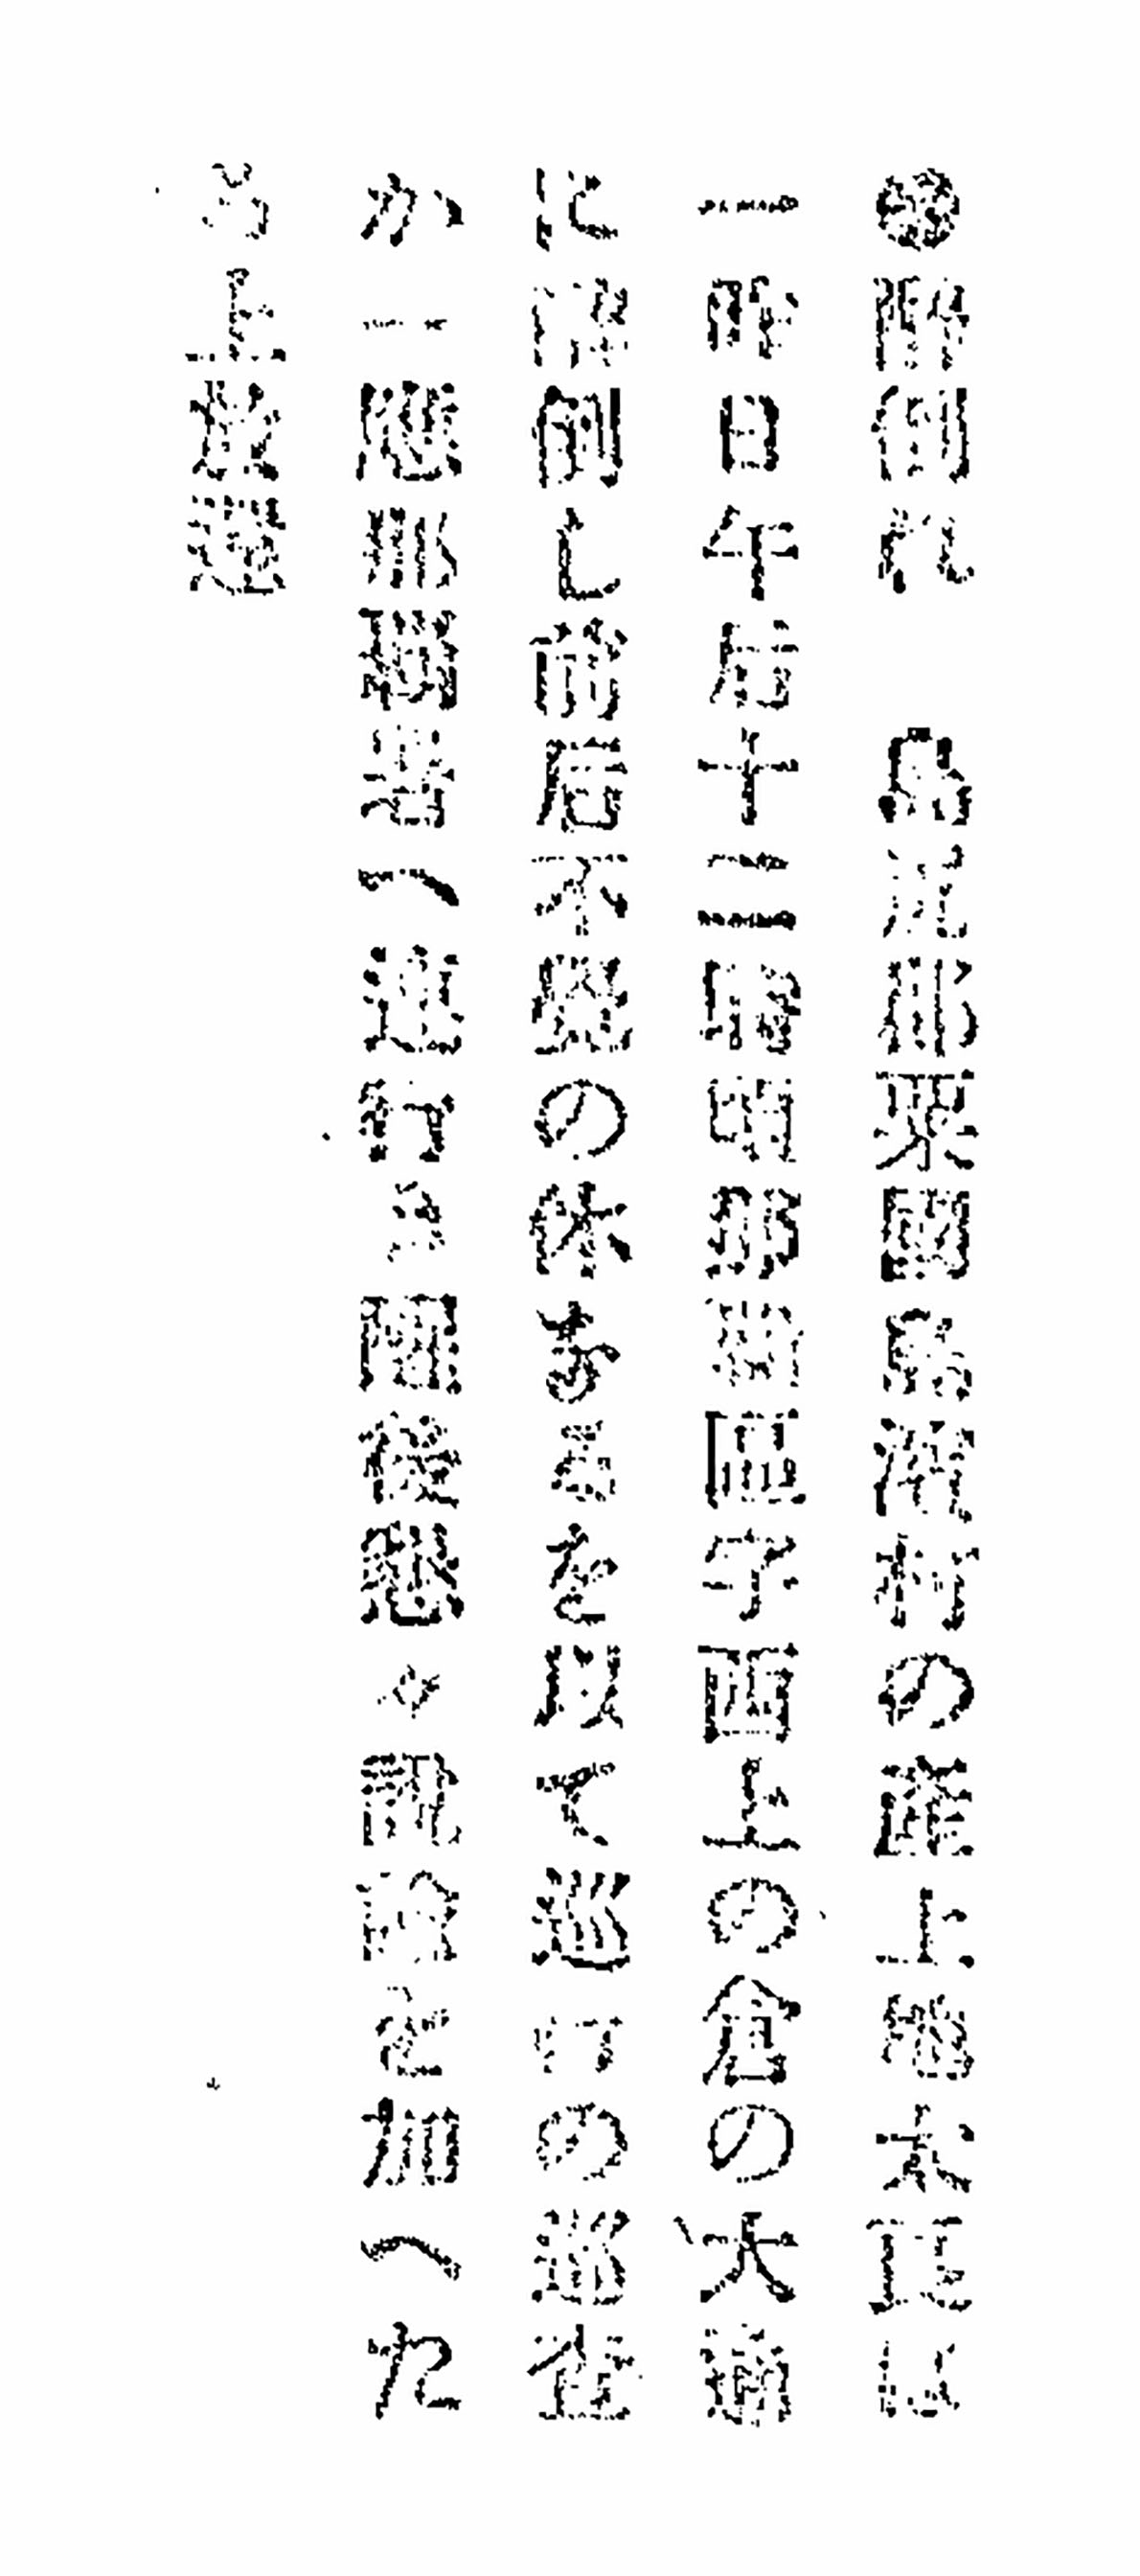 ●酔倒れ　島尻郡粟国島濱村の産上地太良は
一昨日午后十二時頃那覇区字西上の倉の大道
に酔倒し前后不覚の体あるを以て巡行の巡査
か一応那覇署へ連行き醒後懇々説諭を加へた
る上放還